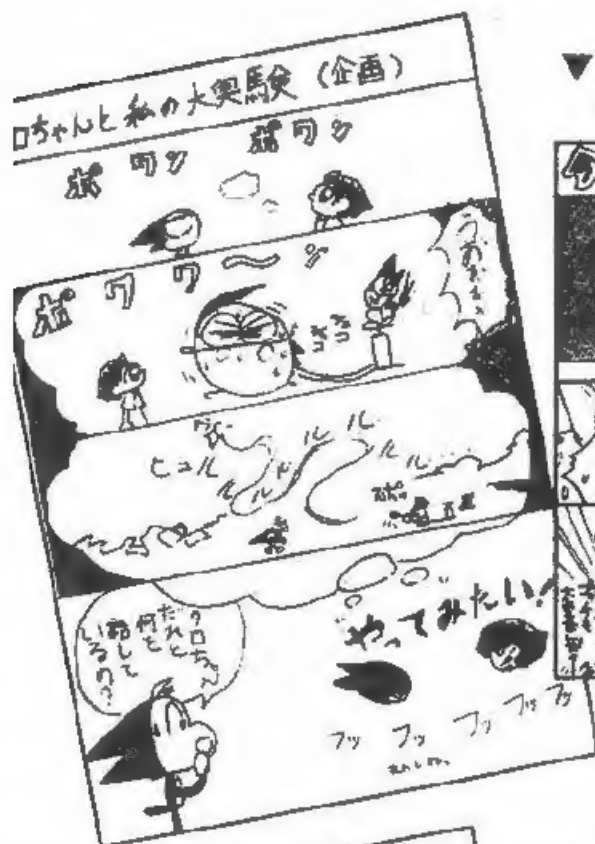 ロちゃんと私の大実験(企画)
ポワン ポワン
ポワワ〜ン
ヒュルルルルル
スポッ
やってみたい!
クロちゃん
だれと
何を
話して
いるの?
フッ フッ フッ フッ フッ